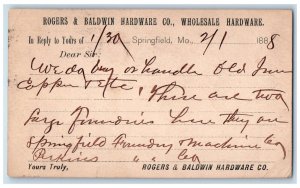 ROGERS & BALDWIN HARDWARE CO., WHOLESALE HARDWARE.
In Reply to Yours of 1/30 Springfield, Mo., 2/1 1888
Dear Sir
We do buy or handle Old Iron
Copper & Etc. There are two
Large Foundries here they are
Springfield Foundry & Machine Co
Perkins " " Co
Yours Truly, ROGERS & BALDWIN HARDWARE CO.